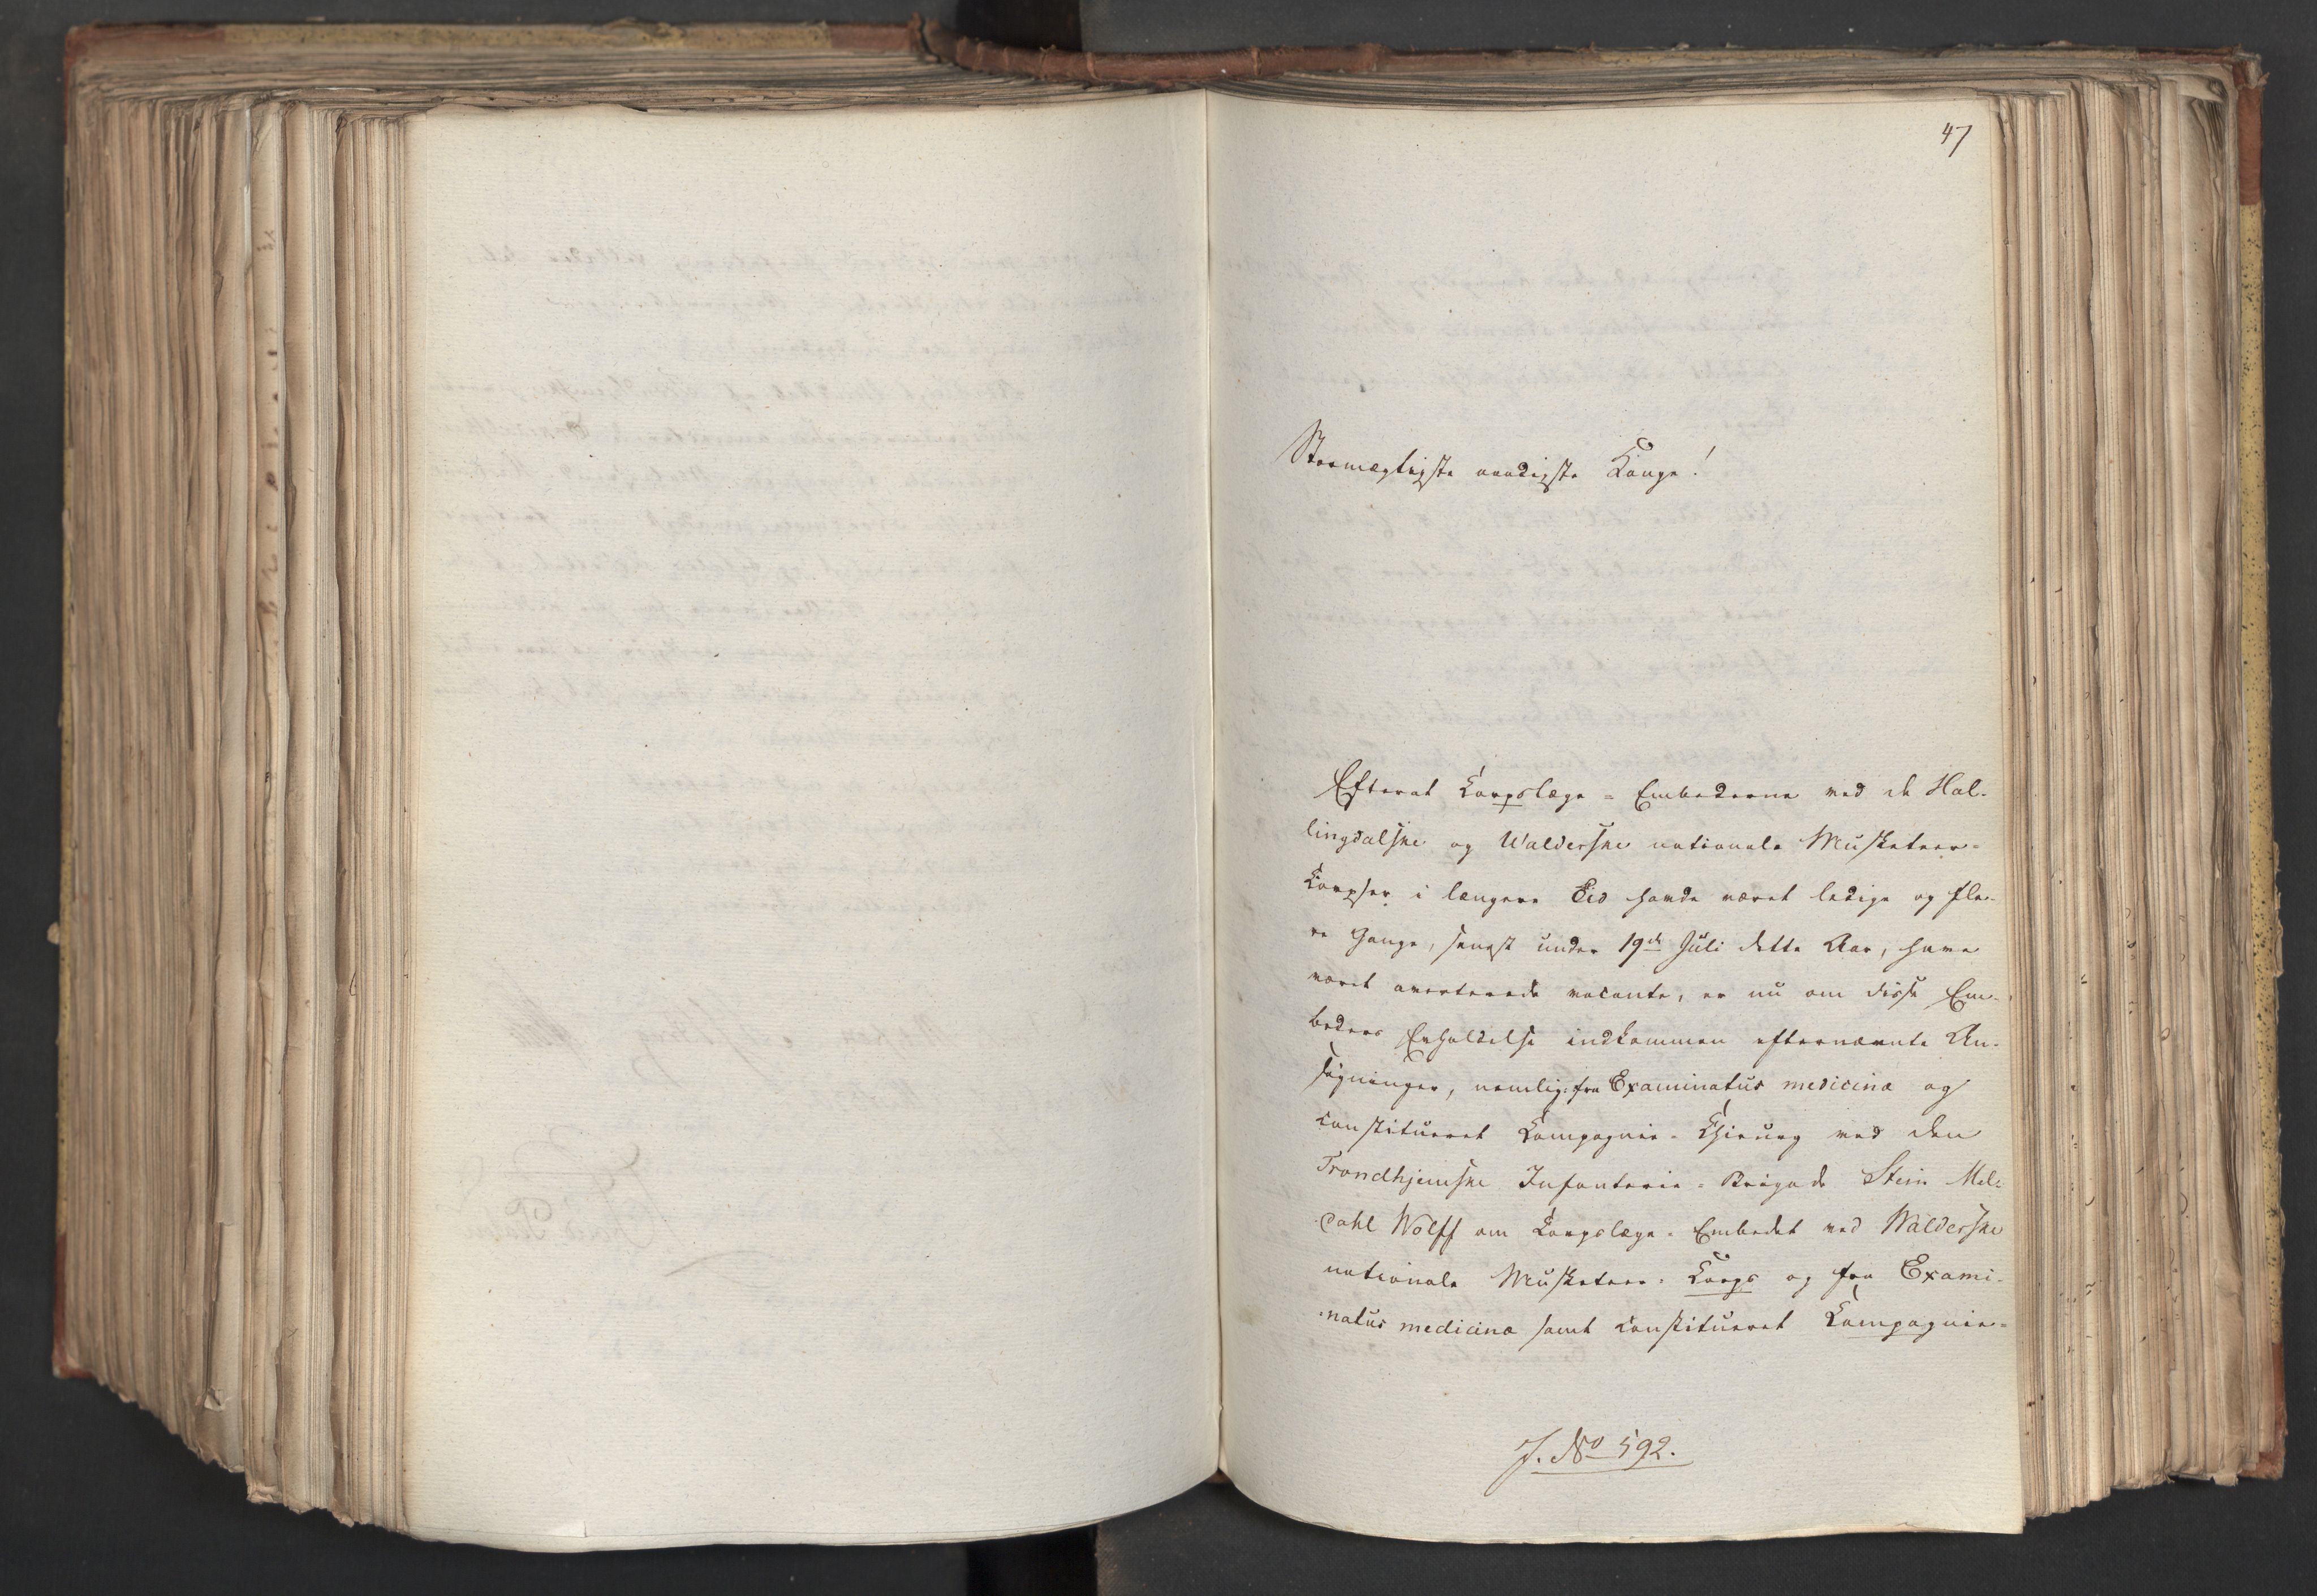 47
Stormægtigste naadigste Konge!
Efterat Korpslæge=Embederne ved de Hal-
lingdalske og Walderske nationale Musketeer=
Korpser i længere Tid havde været ledige og fle-
re Gange, senest under 19de Juli dette Aar, have
været averterede vacante, er nu om disse Em-
beders Erholdelse indkommen efternævnte An-
søgninger, nemlig: fra Examinatus medicinæ og
constitueret Kompagnie-Chirurg ved den
Trondhjemske Infanterie=Brigade Stein Mel-
dahl Wolff om Korpslæge-Embedet ved Walderske
nationale Musketeer=Korps og fra Exami-
natus medicinæ samt constitueret Kompagnie=
J. No 592.